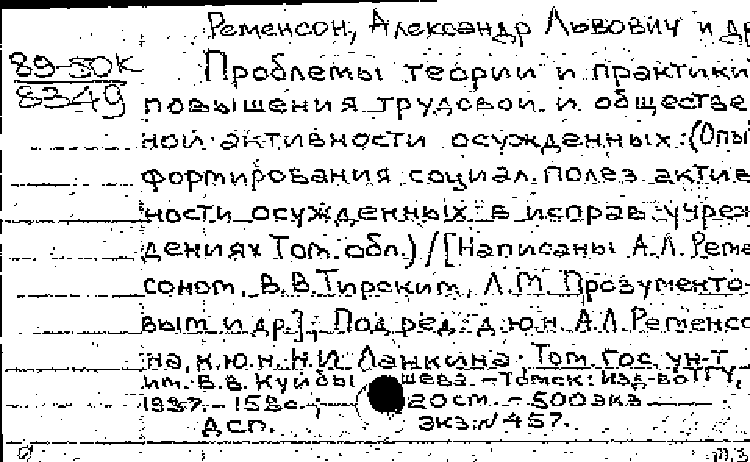 Ременсон, Александр Львович и др
89-50К
8349
Проблемы теории и практики
повышения трудовой и обществе
ной активности осужденных: (Опы
формирования социал. полез. актив
ности осужденных в исправ. учреж
дениях Том. обл.) / [Написаны А.Л. Реме
соном, В.В. Тирским, Л.М. Прозументо-
вым и др.]; Под ред. д.ю.н. А.Л. Ременсо
на, к.ю.н. Н.И. Ланкина; Том. гос. ун-т
им. В.В. Куйбышева. - Томск: Изд-во ТГУ,
1987. - 158 с.; 20 см. - 500 экз.
ДСП. экз. № 457.